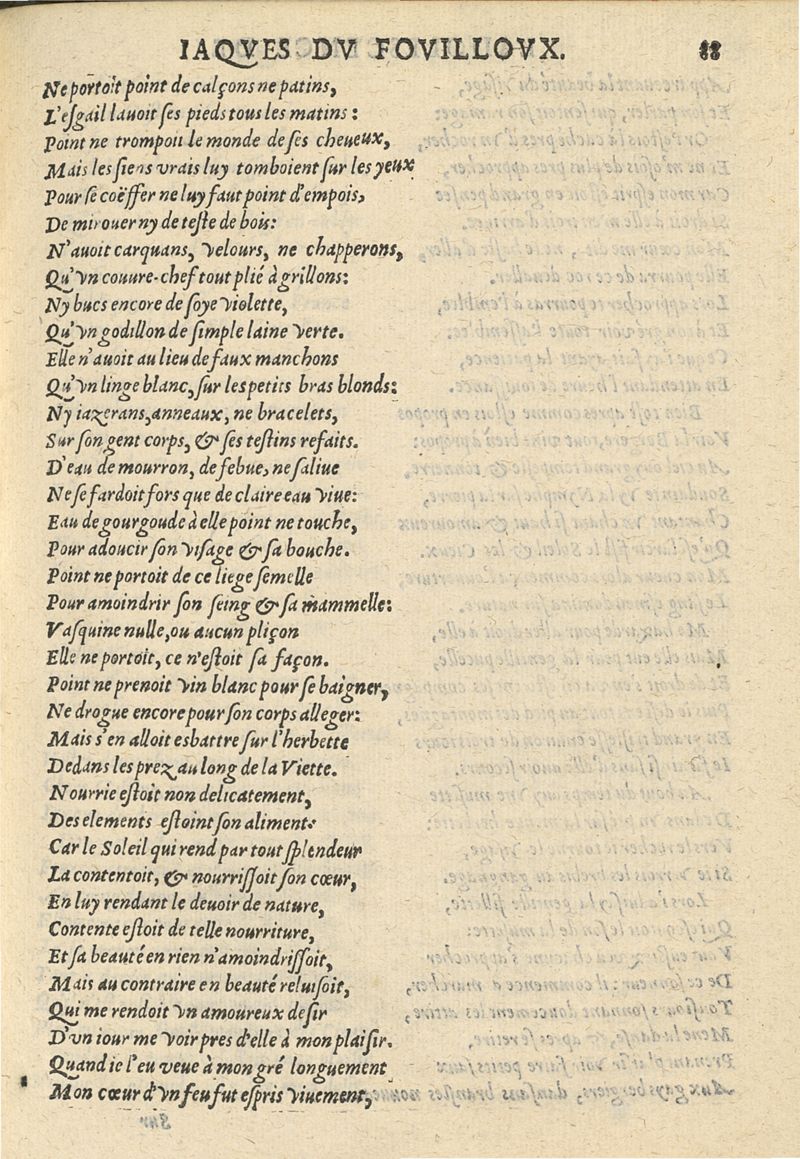 IAQVES DV FOVILLOVX. 88
Ne portoit point de calçons ne patins,
L'esgail lauoit ses pieds tous les matins:
Point ne trompoit le monde de ses cheueux,
Mais les siens vrais luy tomboient sur les yeux
Pour se coëffer ne luy faut point d'empois,
De mirouer ny de teste de bois:
N'auoit carquans, velours, ne chapperons,
Qu'vn couure-chef tout plié à grillons:
Ny bucs encore de soye violette,
Qu'vn godillon de simple laine verte.
Elle n'auoit au lieu de faux manchons
Qu'vn linge blanc, sur les petits bras blonds:
Ny iazerans, anneaux, ne bracelets,
Sur son gent corps, & ses testins refaits.
D'eau de mourron, de febue, ne saliue
Ne se fardoit fors que de claire eau viue:
Eau de gourgoude à elle point ne touche,
Pour adoucir son visage & sa bouche.
Point ne portoit de ce liege semelle
Pour amoindrir son seing & sa mammelle:
Vasquine nulle, ou aucun pliçon
Elle ne portoit, ce n'estoit sa façon.
Point ne prenoit vin blanc pour se baigner,
Ne drogue encore pour son corps alleger:
Mais s'en alloit esbattre sur l'herbette
Dedans les prez au long de la Viette.
Nourrie estoit non delicatement,
Des elements estoint son aliment:
Car le Soleil qui rend par tout splendeur
La contentoit, & nourrissoit son cœur,
En luy rendant le deuoir de nature,
Contente estoit de telle nourriture,
Et sa beauté en rien n'amoindrissoit,
Mais au contraire en beauté reluisoit,
Qui me rendoit vn amoureux desir
D'vn iour me voir pres d'elle à mon plaisir.
Quand ie l'eu veue à mon gré longuement
Mon cœur d'vn feu fut espris viuement,